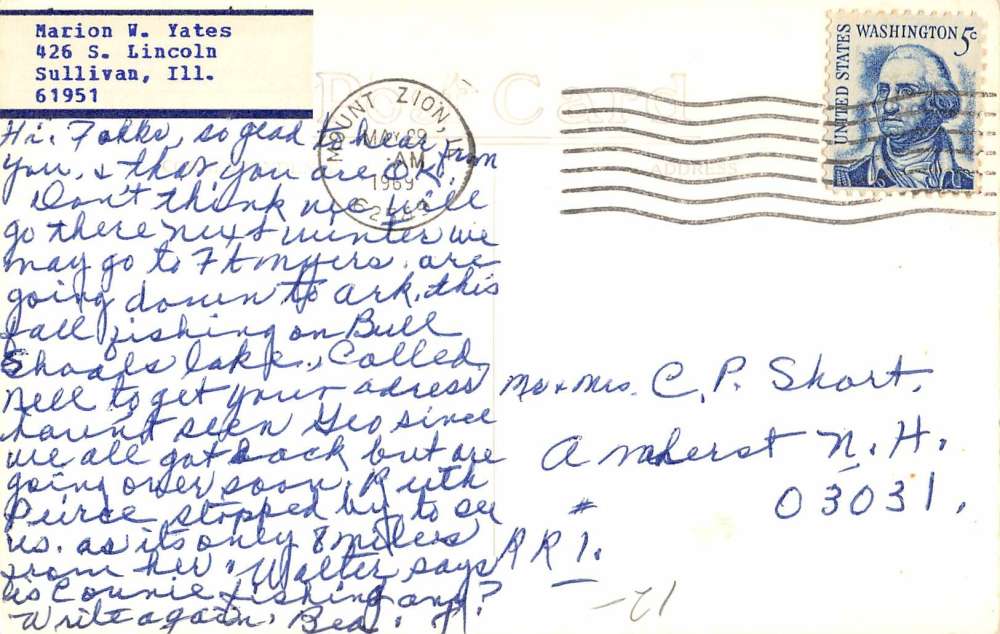 Marion W. Yates
426 S. Lincoln
Sullivan, Ill.
61951
Post Card
ADDRESS
MOUNT ZION, IL
MAY 29
AM
1969
62549
UNITED STATES
WASHINGTON 5c
Hi. Folks, so glad to hear from
you, & that you are O.K.
Don't think we will
go there next winter we
may go to Ft Myers. are
going down to Ark. this
fall fishing on Bull
Shoals lake., Called
Nell to get your adress
havent seen Geo since
we all got back but are
going over soon. Ruth
Peirce stopped by to see
us. as its only 8 miles
from her. Walter says
is Connie fishing any?
Write again, Bea.
Mr & Mrs. C. P. Short.
Amherst N. H.
03031.
# RR 1.